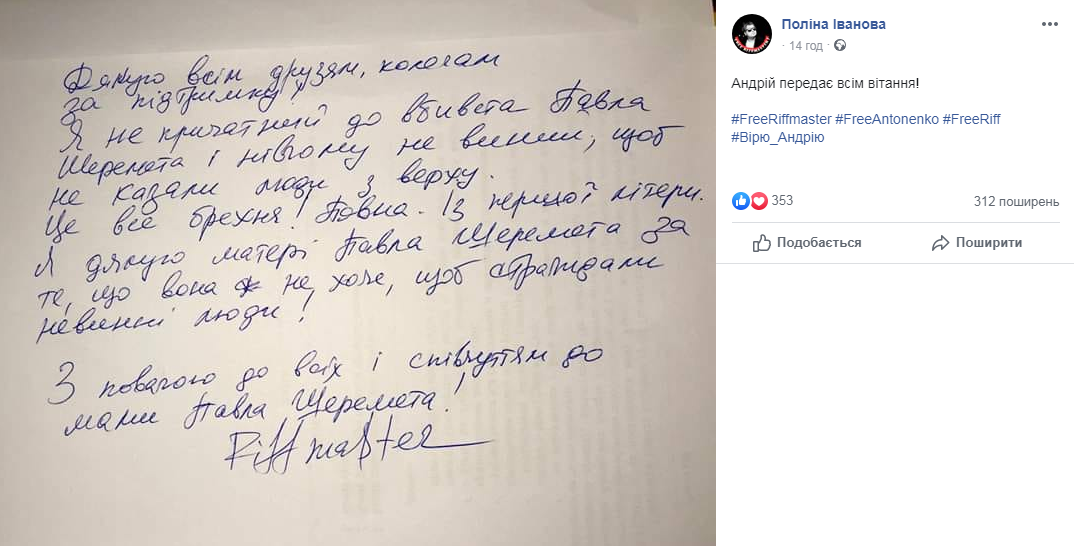 Дякую всім друзям, колегам
за підтримку!
Я не причатний до вбивста Павла
Шеремета і нівчому не винин, щоб
не казали люди з верху.
Це все брехня! Повна. Із першої літери.
Я дякую матері Павла Шеремета за
те, що вона не хоче, щоб страждали
невинні люди!
З повагою до всіх і співчуттям до
мами Павла Шеремета!
Riffmaster
Поліна Іванова
· 14 год ·
Андрій передає всім вітання!
#FreeRiffmaster #FreeAntonenko #FreeRiff
#Вірю_Андрію
353
312 поширень
Подобається
Поширити